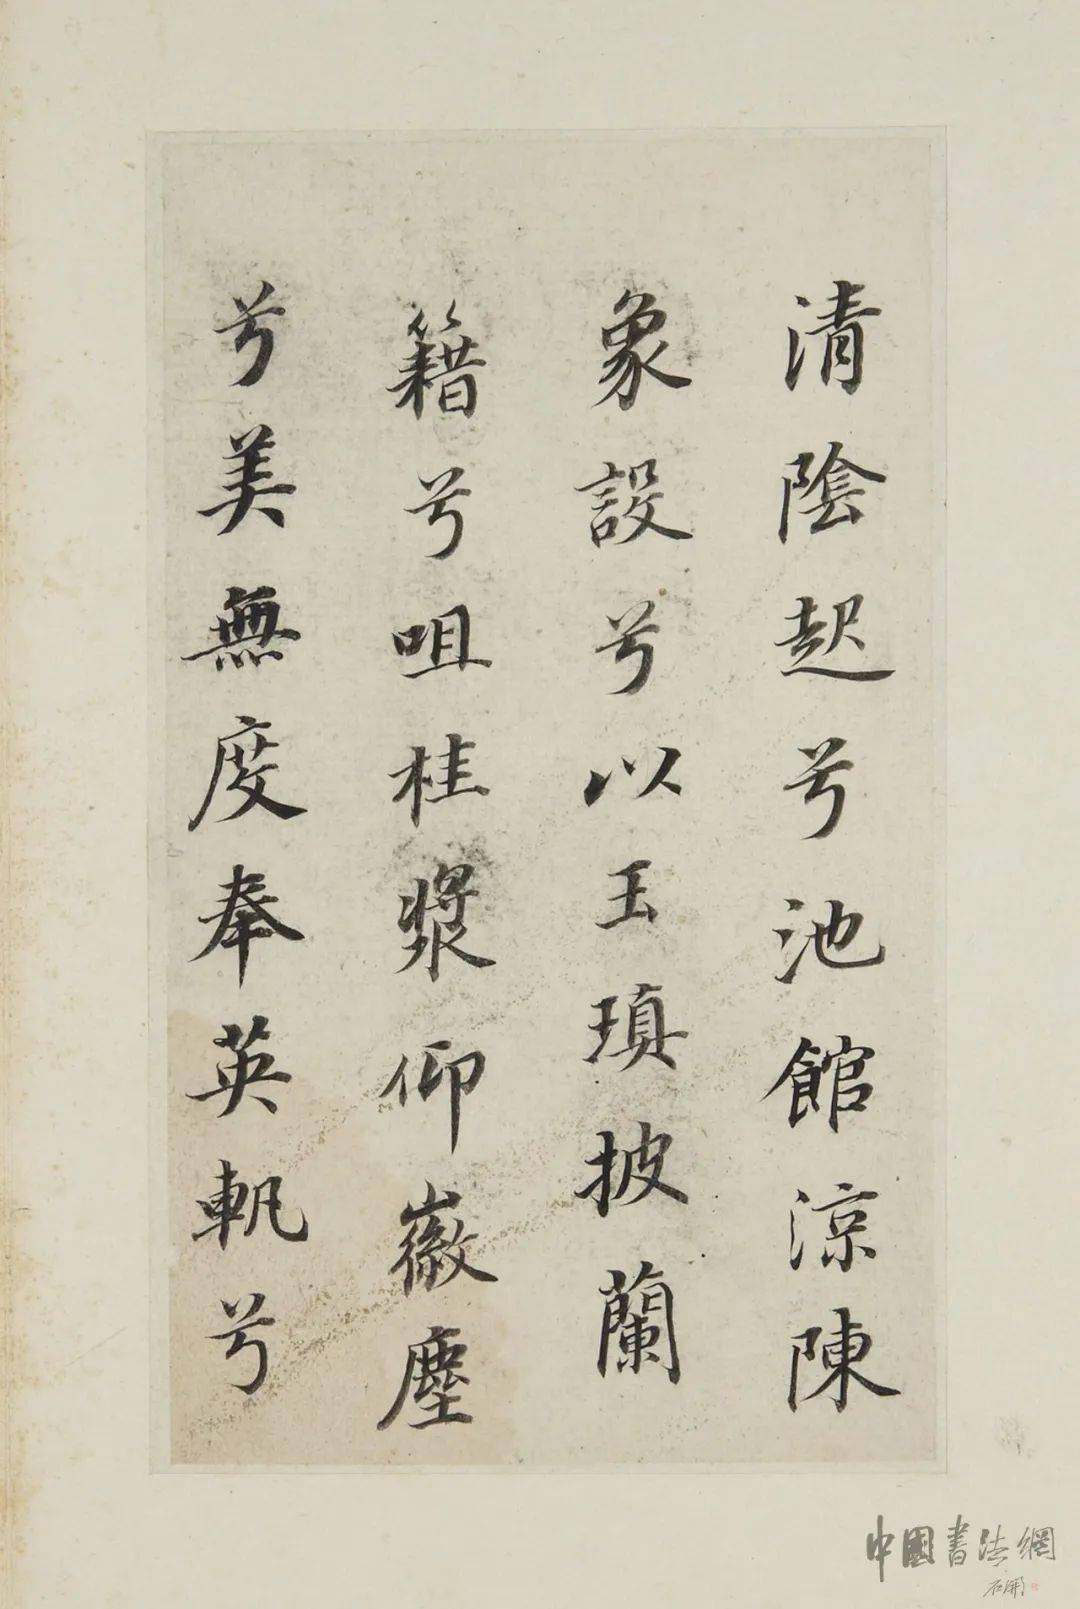 清陰起兮池館涼陳
象設兮以玉瑱披蘭
籍兮咀桂漿仰徽塵
兮美無度奉英軓兮
中國書法網